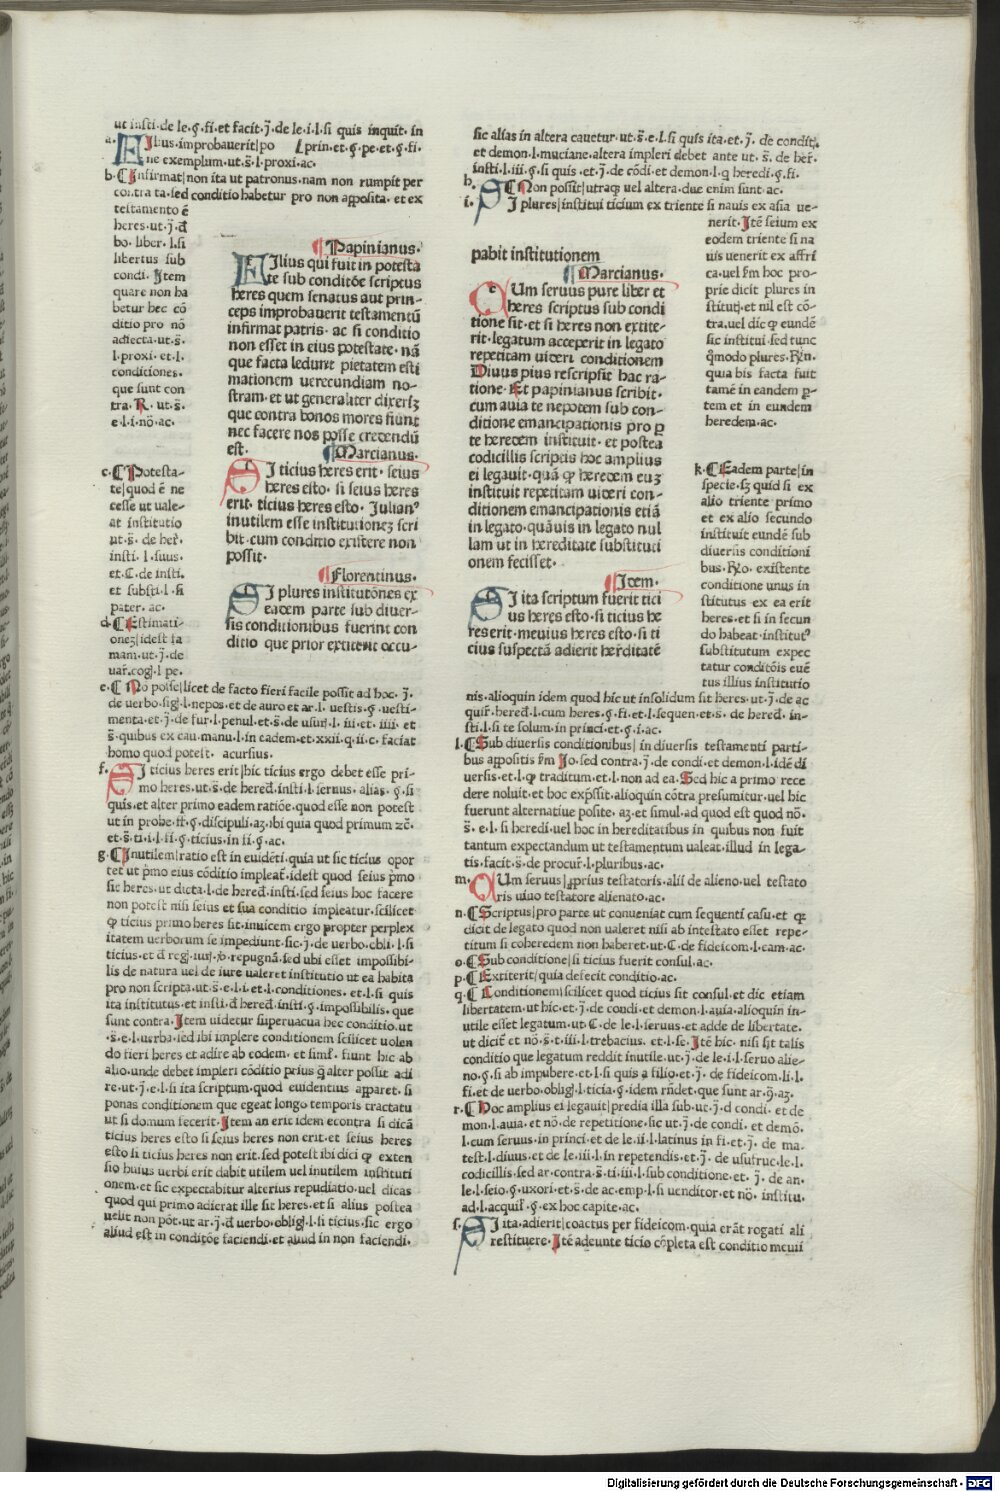 ut insti·de le·§·fi·et facit·j̄·de le·i·l·si quis inquit·in
a. FIlius·improbauerit|po l·prin·et·§·pe·et·§·fi·
ne exemplum·ut·s̄·l·proxi·ac·
b. Infirmat|non ita ut patronus·nam non rumpit per
contra ta·sed conditio habetur pro non apposita·et ex
testamento ē
heres·ut·j̄·d̄
bo·liber·l·si
libertus sub
condi·Item
quare non ha
betur hec cō
ditio pro nō
adiecta·ut·s̄·
l·proxi·et·l·
conditiones·
que sunt con
tra·R·ut·s̄·
e·l·i·nō·ac·
c. Potesta-
te|quod ē ne
cesse ut uale-
at institutio
ut·s̄·de her̄·
insti·l·suus·
et·C·de insti·
et substi·l·si
pater·ac·
d. Estimati-
onez|idest fa
mam·ut·j̄·de
uar̄·coḡ·l·pe·
Papinianus·
FIlius qui fuit in potesta
te sub conditōe scriptus
heres quem senatus aut prin-
ceps improbauerit testamentū
infirmat patris·ac si conditio
non esset in eius potestate·nā
que facta ledunt pietatem esti
mationem uerecundiam no-
stram·et ut generaliter dixerīz
que contra bonos mores fiunt
nec facere nos posse credendū
est·
Marcianus·
SI ticius heres erit·seius
heres esto·si seius heres
erit·ticius heres esto·Julian⁹
inutilem esse institutionez scri
bit·cum conditio existere non
possit·
Florentinus·
SI plures institutōnes ex
eadem parte sub diuer-
sis conditionibus fuerint con
ditio que prior extiterit occu-
e. No posse|licet de facto fieri facile possit ad hoc·j̄·
de uerbo·siḡ·l·nepos·et de auro et ar·l·uestis·§·uesti-
menta·et·j̄·de fur·l·penul·et·s̄·de usur̄·l·iii·et·iiii·et
s̄·quibus ex cau·manu·l·in eadem·et·xxii·q·ii·c·faciat
homo quod potest·acursius·
f. SI ticius heres erit|hic ticius ergo debet esse pri-
mo heres·ut·s̄·de hered̄·insti·l·seruus·alias·§·si
quis·et alter primo eadem ratiōe·quod esse non potest
ut in probe·ff·§·discipuli·az·ibi quia quod primum zc̄·
et·s̄·ti·i·l·fi·§·ticius·in fi·§·ac·
g. Inutilem|ratio est in euidēti·quia ut sic ticius opor
tet ut p̄mo eius cōditio impleat̄·idest quod seius p̄mo
sic heres·ut dicta·l·de hered̄·insti·sed seius hoc facere
non potest nisi seius et sua conditio impleatur·scilicet
ꝙ ticius primo heres sit·inuicem ergo propter perplex
itatem uerborum se impediunt·sic·j̄·de uerbo·obli·l·si
ticius·et·d̄ reḡ·iur̄·l·ubi repugnā·sed ubi esset impossibi-
lis de natura uel de iure ualeret institutio ut ea habita
pro non scripta·ut·s̄·e·l·i·et·l·conditiones·et·l·si quis
ita institutus·et insti·d̄ hered̄·insti·§·impossibilis·que
sunt contra·Item uidetur superuacua hec conditio·ut
·s̄·e·l·uerba·sed ibi implere conditionem scilicet uolen
do fieri heres et adire ab eodem·et simł·fiunt hic ab
alio·unde debet impleri cōditio prius q̄ alter possit adi
re·ut·j̄·e·l·si ita scriptum·quod euidentius apparet·si
ponas conditionem que egeat longo temporis tractatu
ut si domum fecerit·Item an erit idem econtra si dicā
ticius heres esto si seius heres non erit·et seius heres
esto si ticius heres non erit·sed potest ibi dici ꝙ exten
sio huius uerbi erit dabit utilem uel inutilem instituti
onem·et sic expectabitur alterius repudiatio·uel dicas
quod qui primo adierat ille sit heres·et si alius postea
uelit non pōt·ut ar·j̄·d̄ uerbo·obliḡ·l·si ticius·sic ergo
aliud est in conditōe faciendi·et aliud in non faciendi·
sic alias in altera cauetur·ut·s̄·e·l·si quis ita·et·j̄·de conditi·
et demon·l·muciane·altera impleri debet ante ut·s̄·de her̄·
insti·l·iii·§·si quis·et·j̄·de cōdi·et demon·l·q heredi·§·fi·
h. Non possit|utraq uel altera·due enim sunt·ac·
i. SI plures|institui ticium ex triente si nauis ex asia ue-
nerit·Itē seium ex
eodem triente si na
uis uenerit ex affri
ca·uel s̄m hoc pro-
prie dicit plures in
stituti·et nil est cō-
tra·uel dic ꝙ eundē
sic institui·sed tunc
q̄modo plures·R̄n·
quia bis facta fuit
tamē in eandem p-
tem et in eundem
heredem·ac·
pabit institutionem
Marcianus·
CUm seruus pure liber et
heres scriptus sub condi
tione sit·et si heres non extite-
rit·legatum acceperit in legato
repetitam uideri conditionem
Diuus pius rescripsit hac ra-
tione·Et papinianus scribit·
cum auia te nepotem sub con-
ditione emancipationis pro p
te heredem instituit·et postea
codicillis scriptis hoc amplius
ei legauit·quā ꝙ heredem euz
instituit repetitam uideri con-
ditionem emancipationis etiā
in legato·quāuis in legato nul
lam ut in hereditate substituti
onem fecisset·
Item·
SI ita scriptum fuerit tici
us heres esto·si ticius he
res erit·meuius heres esto·si ti
cius suspectā adierit her̄ditatē
k. Eadem parte|in
specie·sz quid si ex
alio triente primo
et ex alio secundo
instituit eundē sub
diuersis conditioni
bus·R̄o·existente
conditione unus in
stitutus ex ea erit
heres·et si in secun
do habeat institut⁹
substitutum expec
tatur conditōis euē
tus illius institutio
nis·alioquin idem quod hic ut insolidum sit heres·ut·j̄·de ac
quir̄·hered̄·l·cum heres·§·fi·et·l·sequen·et·s̄·de hered̄·in-
sti·l·si te solum·in princi·et·§·i·ac·
l. Sub diuersis conditionibus|in diuersis testamenti parti-
bus appositis s̄m Jo·sed contra·j̄·de condi·et demon·l·idē di
uersis·et·l·ꝙ traditum·et·l·non ad ea·Sed hic a primo rece
dere noluit·et hoc exp̄ssit·alioquin cōtra presumitur·uel hic
fuerunt alternatiue posite·az·et simul·ad quod est quod nō·
s̄·e·l·si heredi·uel hoc in hereditatibus in quibus non fuit
tantum expectandum ut testamentum ualeat·illud in lega-
tis·facit·s̄·de procur̄·l·pluribus·ac·
m. CUm seruus|pprius testatoris·alii de alieno·uel testato
ris uiuo testatore alienato·ac·
n. Scriptus|pro parte ut conueniat cum sequenti casu·et ꝙ
dicit de legato quod non ualeret nisi ab intestato esset repe-
titum si coheredem non haberet·ut·C·de fideicom·l·eam·ac·
o. Sub conditione|si ticius fuerit consul·ac·
p. Extiterit|quia defecit conditio·ac·
q. Conditionem|scilicet quod ticius sit consul·et dic etiam
libertatem·ut hic·et·j̄·de condi·et demon·l·auia·alioquin in-
utile esset legatum·ut·C·de le·l·seruus·et adde de libertate·
ut dicit̄ et nō·s̄·t·iii·l·trebacius·et·l·se·Itē hic·nisi sit talis
conditio que legatum reddit inutile·ut·j̄·de le·i·l·seruo alie-
no·§·si ab impubere·et·l·si quis a filio·et·j̄·de fideicom·li·l·
fi·et de uerbo·obliḡ·l·ticia·§·idem r̄ndet·que sunt ar·ɔ̄·az·
r. Hoc amplius ei legauit|predia illa sub·ut·j̄·d condi·et de
mon·l·auia·et nō·de repetitione·sic ut·j̄·de condi·et demō·
l·cum seruus·in princi·et de le·ii·l·latinus in fi·et·j̄·de ma-
test·l·diuus·et de le·iii·l·in repetendis·et·j̄·de usufruc·le·l·
codicillis·sed ar·contra·s̄·ti·iii·l·sub conditione·et·j̄·de an·
le·l·seio·§·uxori·et·s̄·de ac·emp·l·si uenditor·et nō·institu·
ad·l·acquil̄·§·ex hoc capite·ac·
s. SI ita·adierit|coactus per fideicom·quia erāt rogati ali
restituere·Itē adeunte ticio cōpleta est conditio meuii
Digitalisierung gefördert durch die Deutsche Forschungsgemeinschaft - DFG